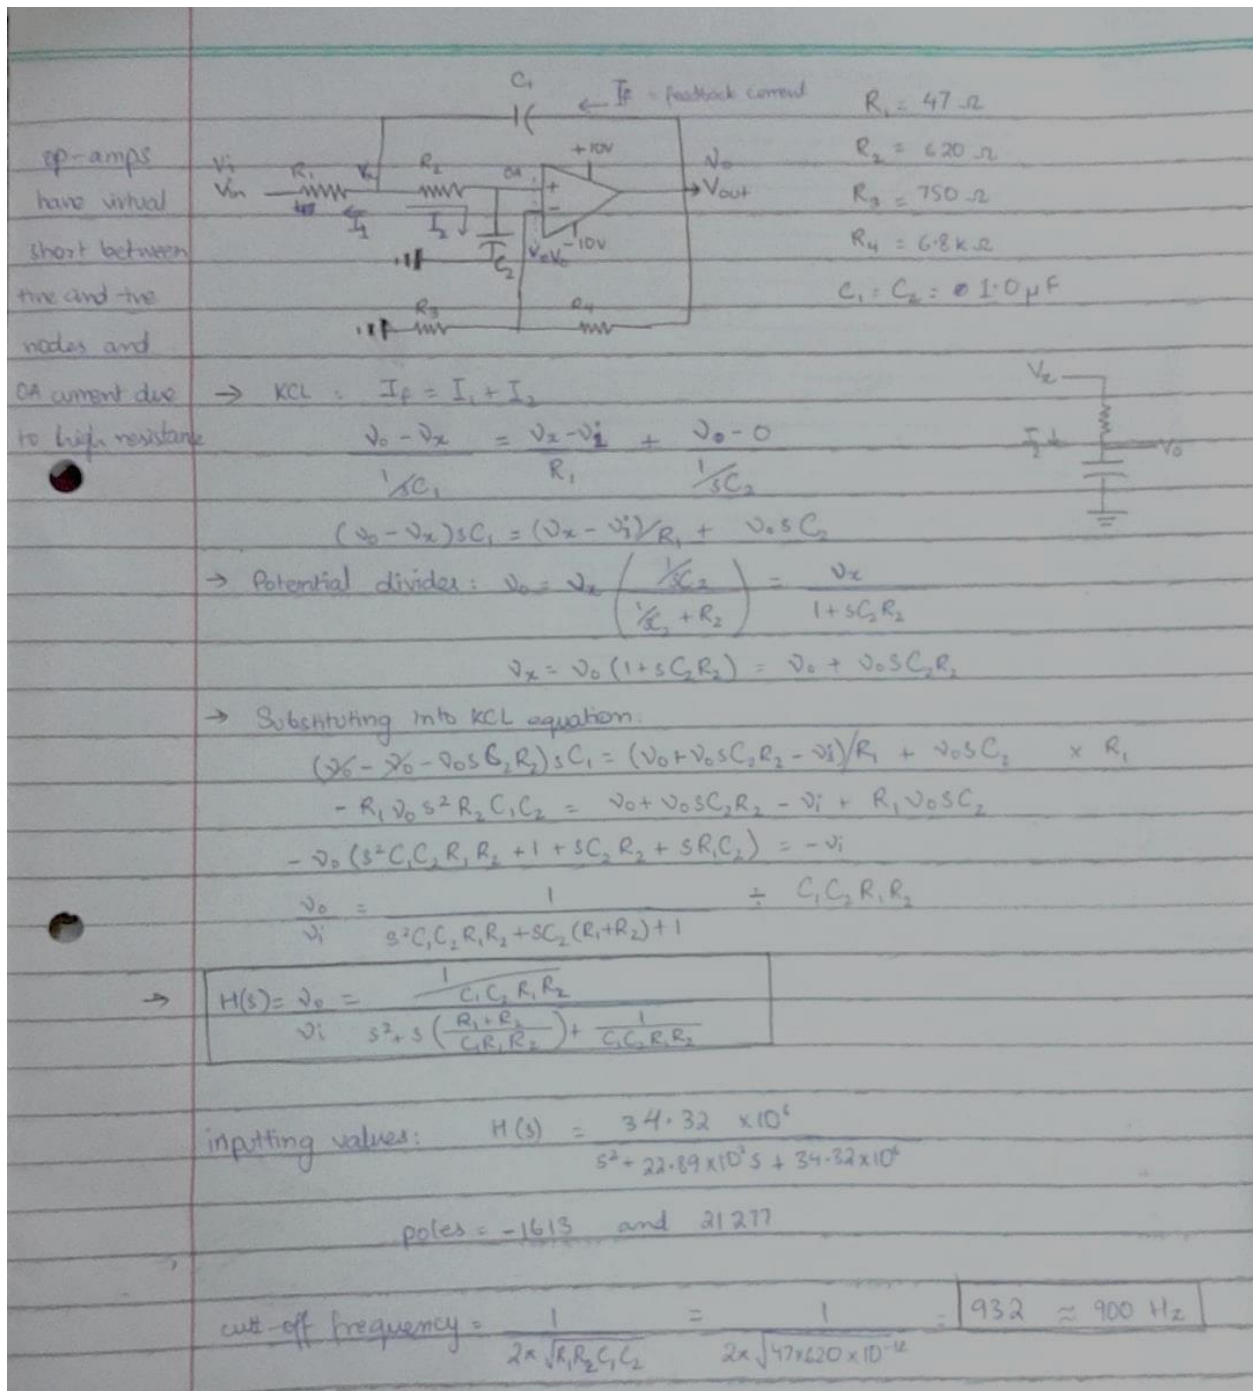 C₁
← If = feedback current
R₁ = 47 Ω
op-amps
have virtual
short between
+ve and -ve
nodes and
0A current due
to high resistance
Vi
Vin
R₁
Vx
R₂
0A
+10V
Vo
Vout
R₂ = 620 Ω
R₃ = 750 Ω
I₁
I₂
+
-
-10V
C₂
R₄ = 6.8k Ω
C₁ = C₂ = 1.0 μF
R₃
R₄
→ KCL : If = I₁ + I₂
Vx
(vo - vx) / (1/sC₁) = (vx - vi) / R₁ + (vo - 0) / (1/sC₂)
Vo
(vo - vx)sC₁ = (vx - vi)/R₁ + vosC₂
→ Potential divider: vo = vx ((1/sC₂) / (1/sC₂ + R₂)) = vx / (1 + sC₂R₂)
vx = vo (1 + sC₂R₂) = vo + vosC₂R₂
→ Substituting into KCL equation:
(vo - vo - vosC₂R₂)sC₁ = (vo + vosC₂R₂ - vi)/R₁ + vosC₂ × R₁
- R₁vos²R₂C₁C₂ = vo + vosC₂R₂ - vi + R₁vosC₂
- vo (s²C₁C₂R₁R₂ + 1 + sC₂R₂ + sR₁C₂) = - vi
vo / vi = 1 / (s²C₁C₂R₁R₂ + sC₂(R₁+R₂) + 1) ÷ C₁C₂R₁R₂
→ H(s) = vo / vi = (1 / C₁C₂R₁R₂) / (s² + s((R₁+R₂) / C₁R₁R₂) + 1 / C₁C₂R₁R₂)
inputting values: H(s) = 34.32 × 10⁶ / (s² + 22.89 × 10³s + 34.32 × 10⁶)
poles = -1613 and 21277
cutt-off frequency = 1 / (2π√R₁R₂C₁C₂) = 1 / (2π√47×620×10⁻¹²) = 932 ≈ 900 Hz